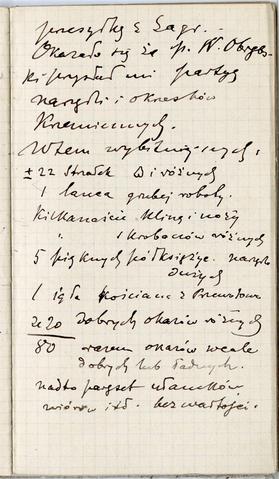 przesyłkę z Zagr.
Okazało się że p. W. Obrębs-
ki przysłał mi partyę
narzędzi i okrzesków
krzemiennych.
Wtem wybitniejszych,
± 22 strzałek i różnych
1 lanca grubej roboty.
Kilkanaście kling i noży
" skrobaczów różnych
5 pięknych półksiężyc. narzędz
dużych
1 igła kościana z
ze 20 dobrych okazów różnych
80 razem okazów wcale
dobrych lub ładnych.
nadto paręset ułamków
wiórów itd. bez wartości.